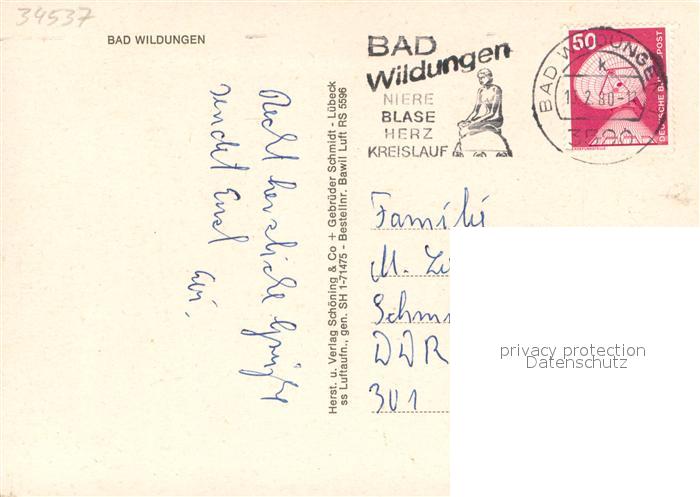 34537
BAD WILDUNGEN
Recht herzliche Grüße
sendet Euch
Herst. u. Verlag Schöning & Co + Gebrüder Schmidt - Lübeck
ss Luftaufn., gen. SH 1-71475 - Bestellnr. Bawil Luft RS 5596
BAD
Wildungen
NIERE
BLASE
HERZ
KREISLAUF
BAD WILDUNGEN
k
80
50
DEUTSCHE BUNDESPOST
Familie
M.
DDR
301
privacy protection
Datenschutz